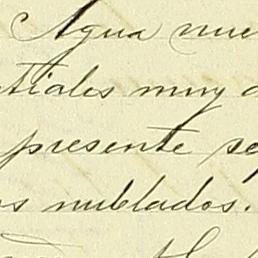 Agua nue
tiales muy d
presente se
os nublados.